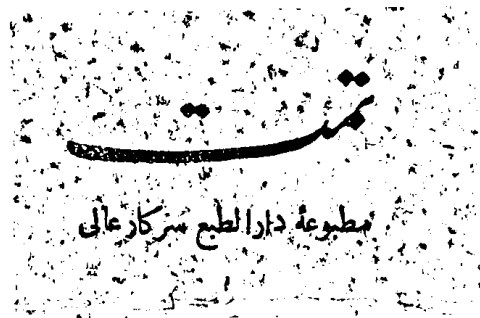 تمت
مطبوعۂ دارالطبع سرکار عالی